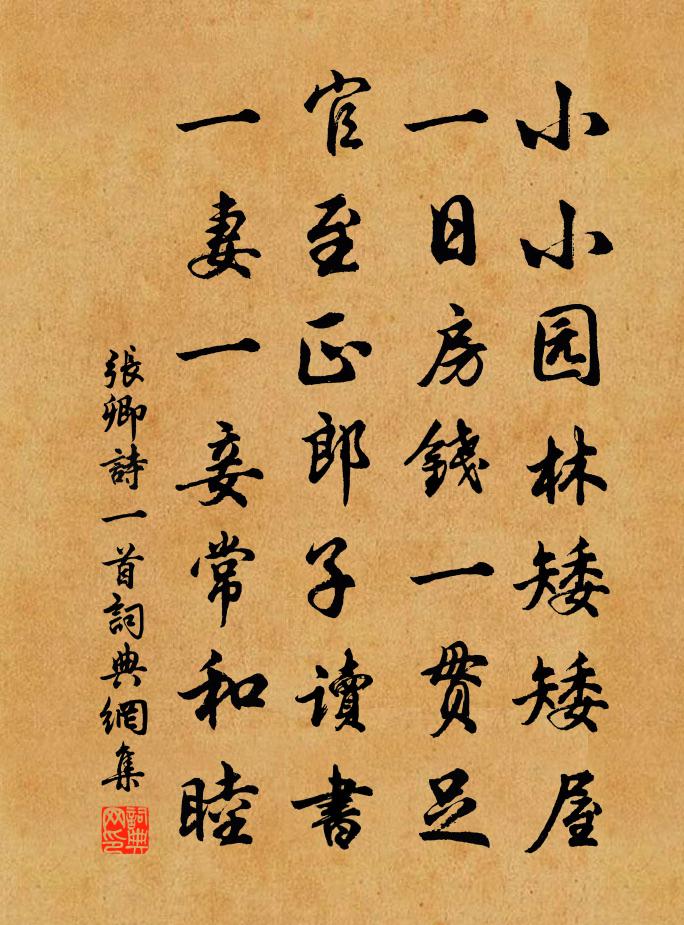 小小园林矮矮屋
一日房錢一贯足
官至正郎子讀書
一妻一妾常和睦
張卿詩一首詞典網集
詞典网印